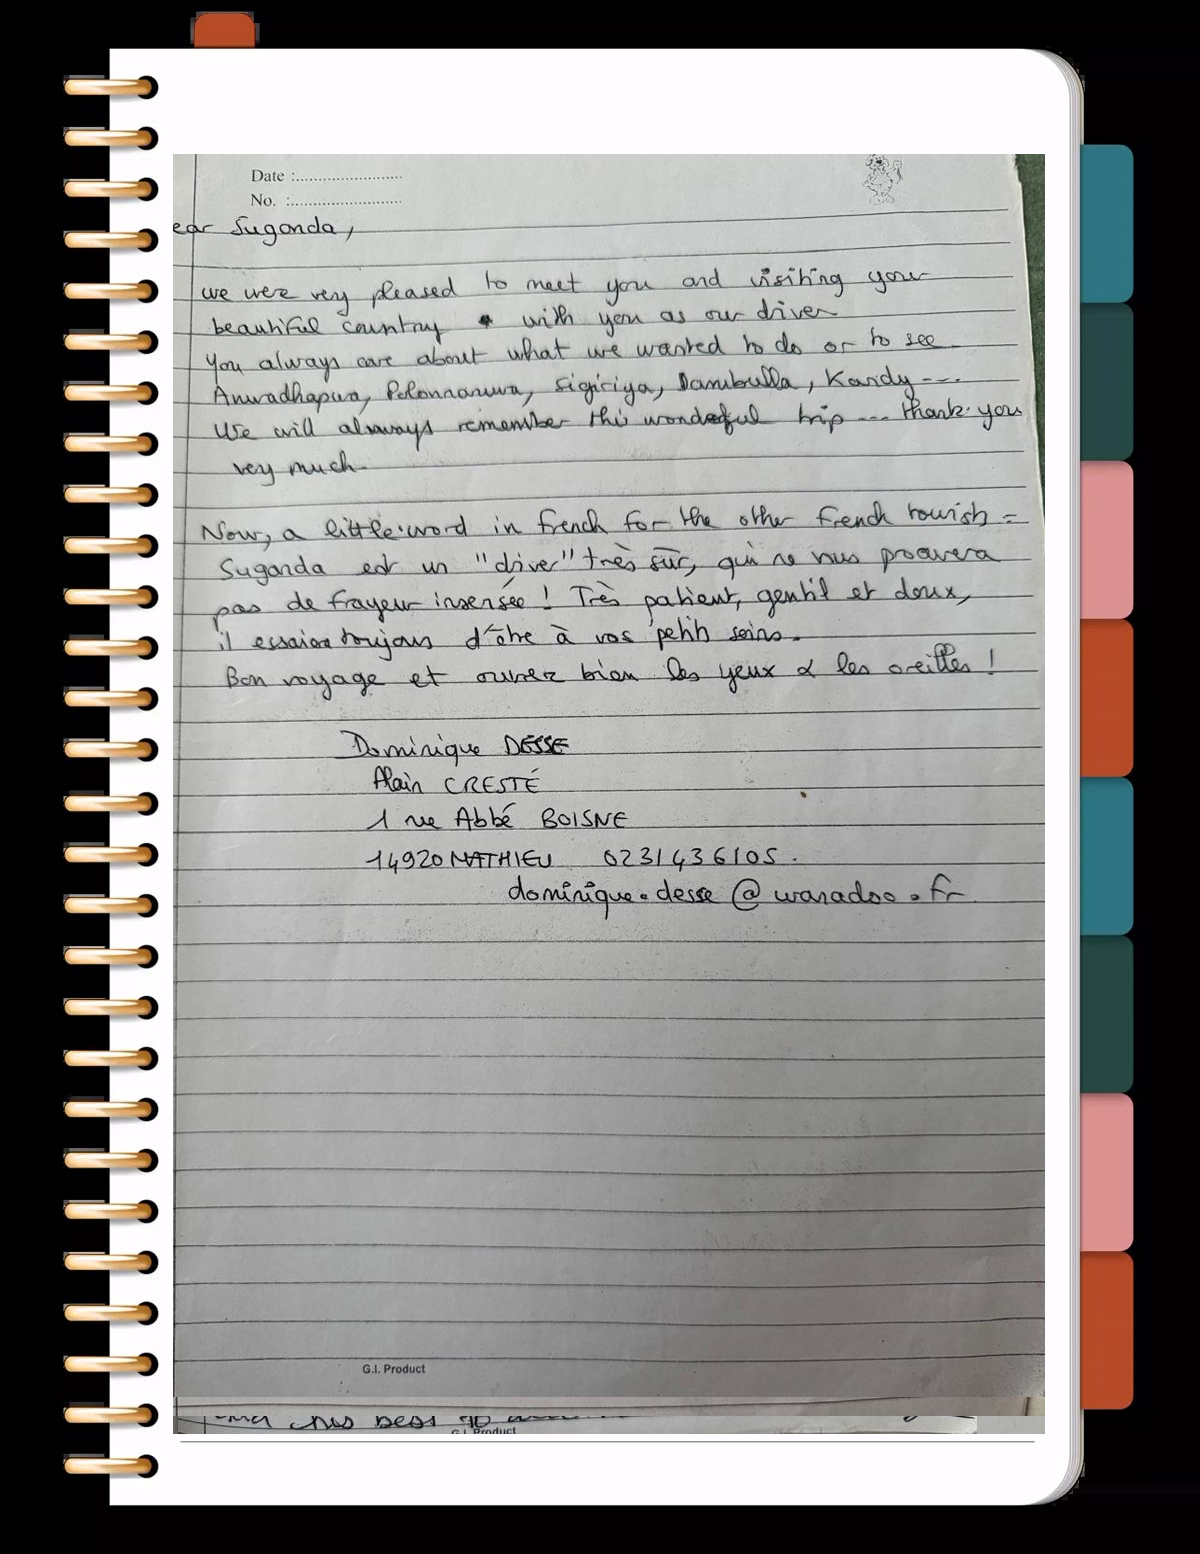 Date :........................
No. :........................
ear Suganda,
we were very pleased to meet you and visiting your
beautiful country with you as our driver
You always care about what we wanted to do or to see.
Anuradhapura, Polonnaruwa, Sigiriya, Dambulla, Kandy ---
We will always remember this wonderful trip --- thank you
very much.
Now, a little word in french for the other french tourists =
Suganda est un "driver" très sûr, qui ne vous procurera
pas de frayeur insensée ! Très patient, gentil et doux,
il essaiera toujours d'être à vos petits soins.
Bon voyage et ouvrez bien les yeux & les oreilles !
Dominique DESSE
Alain CRESTÉ
1 rue Abbé BOISNE
14920 MATHIEU 0231436105.
dominique.desse @ wanadoo.fr
G.I. Product
his best to
G.I. Product